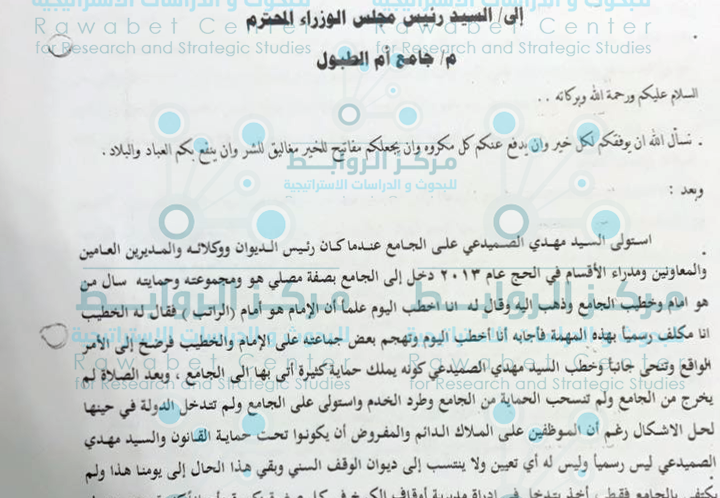 للبحوث و الدراسات الاستراتيجية
إلى/ السيد رئيس مجلس الوزراء المحترم
Rawabet Center
for Research and Strategic Studies
م/ جامع أم الطبول
السلام عليكم ورحمة الله وبركاته ..
. نسأل الله ان يوفقكم لكل خير وان يدفع عنكم كل مكروه وان يجعلكم مفاتيح للخير مغاليق للشر وان ينفع بكم العباد والبلاد .
مركز الروابط
للبحوث و الدراسات الاستراتيجية
وبعد :
استولى السيد مهدي الصميدعي على الجامع عندما كان رئيس الديوان ووكلائه والمديرين العامين
والمعاونين ومدراء الأقسام في الحج عام ٢٠١٣ دخل إلى الجامع بصفة مصلي هو ومجموعته وحمايته سال من
هو امام وخطيب الجامع وذهب اليه وقال له انا اخطب اليوم علما أن الإمام هو أمام (الراتب ) فقال له الخطيب
انا مكلف رسمياً بهذه المهمة فأجابه أنا أخطب اليوم وتهجم بعض جماعته على الإمام والخطيب فرضخ إلى الأمر
الواقع وتنحى جانباً وخطب السيد مهدي الصميدعي كونه يملك حماية كثيرة أتى بها الى الجامع ، وبعد الصلاة لم
يخرج من الجامع ولم تنسحب الحماية من الجامع وطرد الخدم واستولى على الجامع ولم تتدخل الدولة في حينها
لحل الاشكال رغم أن الموظفين على الملاك الدائم والمفروض أن يكونوا تحت حماية القانون والسيد مهدي
الصميدعي ليس رسمياً وليس له أي تعيين ولا ينتسب إلى ديوان الوقف السني وبقي هذا الحال إلى يومنا هذا ولم
يكتفي بالجامع فقط